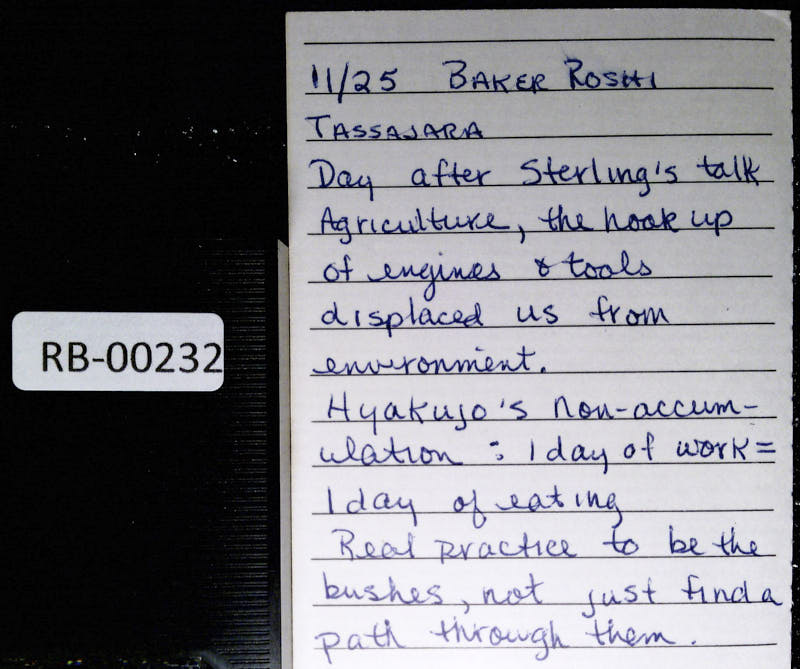 11/25 BAKER ROSHI
TASSAJARA
Day after Sterling's talk
Agriculture, the hook up
of engines & tools
displaced us from
environment.
Hyakujo's non-accum-
ulation : 1 day of work =
1 day of eating
Real practice to be the
bushes, not just find a
path through them.
RB-00232